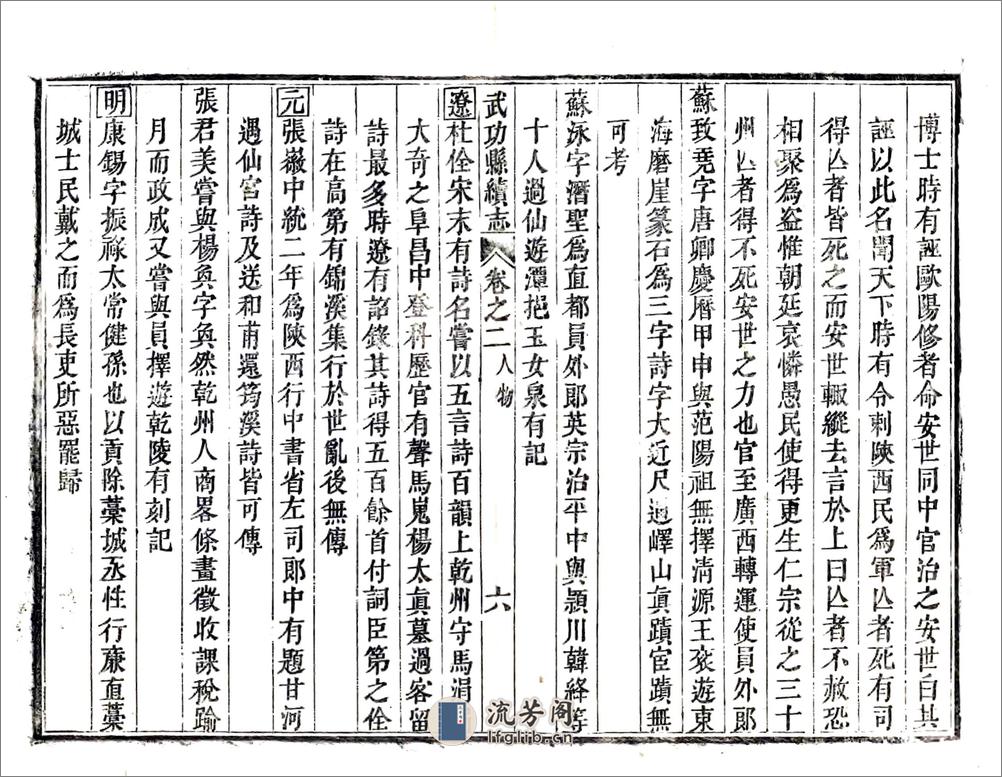 博士時有誣歐陽修者命安世同中官治之安世白其
誣以此名聞天下時有令刺陝西民為軍亾者死有司
得亾者皆死之而安世輒縱去言於上曰亾者不赦恐
相聚為盜惟朝廷哀憐愚民使得更生仁宗從之三十
州亾者得不死安世之力也官至廣西轉運使員外郎
蘇致堯字唐卿慶曆甲申與范陽祖無擇清源王袞遊東
海磨崖篆石為三字詩字大近尺過嶧山真蹟宦蹟無
可考
蘇泳字潛聖為直都員外郎英宗治平中與潁川韓絳等
十人過仙遊潭挹玉女泉有記
武功縣續志 卷之二 人物 六
遼杜佺宋末有詩名嘗以五言詩百韻上乾州守馬涓
大奇之阜昌中登科歷官有聲馬嵬楊太真墓過客留
詩最多時遼有詔錄其詩得五百餘首付詞臣第之佺
詩在高第有錦溪集行於世亂後無傳
元張徽中統二年為陝西行中書省左司郎中有題甘河
遇仙宮詩及送和甫還筠溪詩皆可傳
張君美嘗與楊奐字奐然乾州人商畧條畫徵收課稅踰
月而政成又嘗與員擇遊乾陵有刻記
明康錫字振祿太常健孫也以貢除藁城丞性行廉直藁
城士民戴之而為長吏所惡罷歸
流芳閣
lfglib.cn